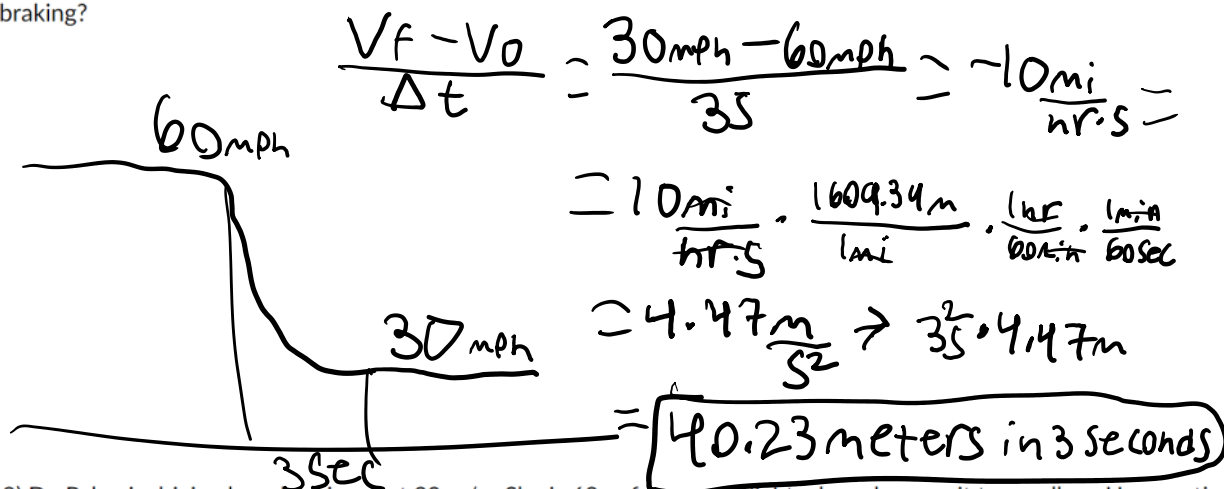 braking?
Vf - Vo / Δt = 30mph - 60mph / 3s = -10 mi / hr·s =
60mph
= 10 mi / hr·s · 1609.34m / 1mi · 1hr / 60min · 1min / 60sec
30mph
= 4.47 m / s² → 3s² · 4.47m
= 40.23 meters in 3 seconds
3 sec